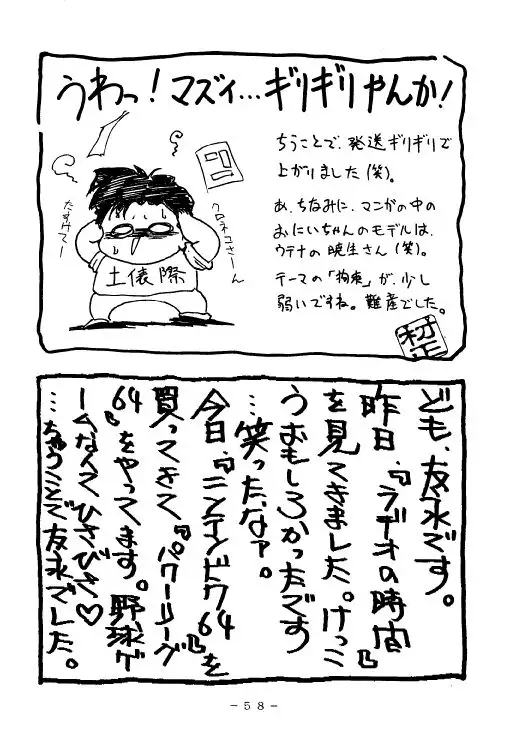 うわっ!マズィ…ギリギリやんか!
ちうことで、発送ギリギリで
上がりました(笑)。
あ、ちなみに、マンガの中の
おにいちゃんのモデルは、
ウテナの暁生さん(笑)。
テーマの「拘束」が、少し
弱いですね。難産でした。
クロネコさーん
たすけてー
土俵際
ども、友永です。
昨日、『ラヂオの時間』
を見てきました。けっこ
うおもしろかったです
…笑ったなァ。
今日、『ニンテンドウ64』を
買ってきて『パワーリーグ
64』をやってます。野球ゲ
ームなんてひさびさ♡
…ちゅうことで友永でした。
-58-